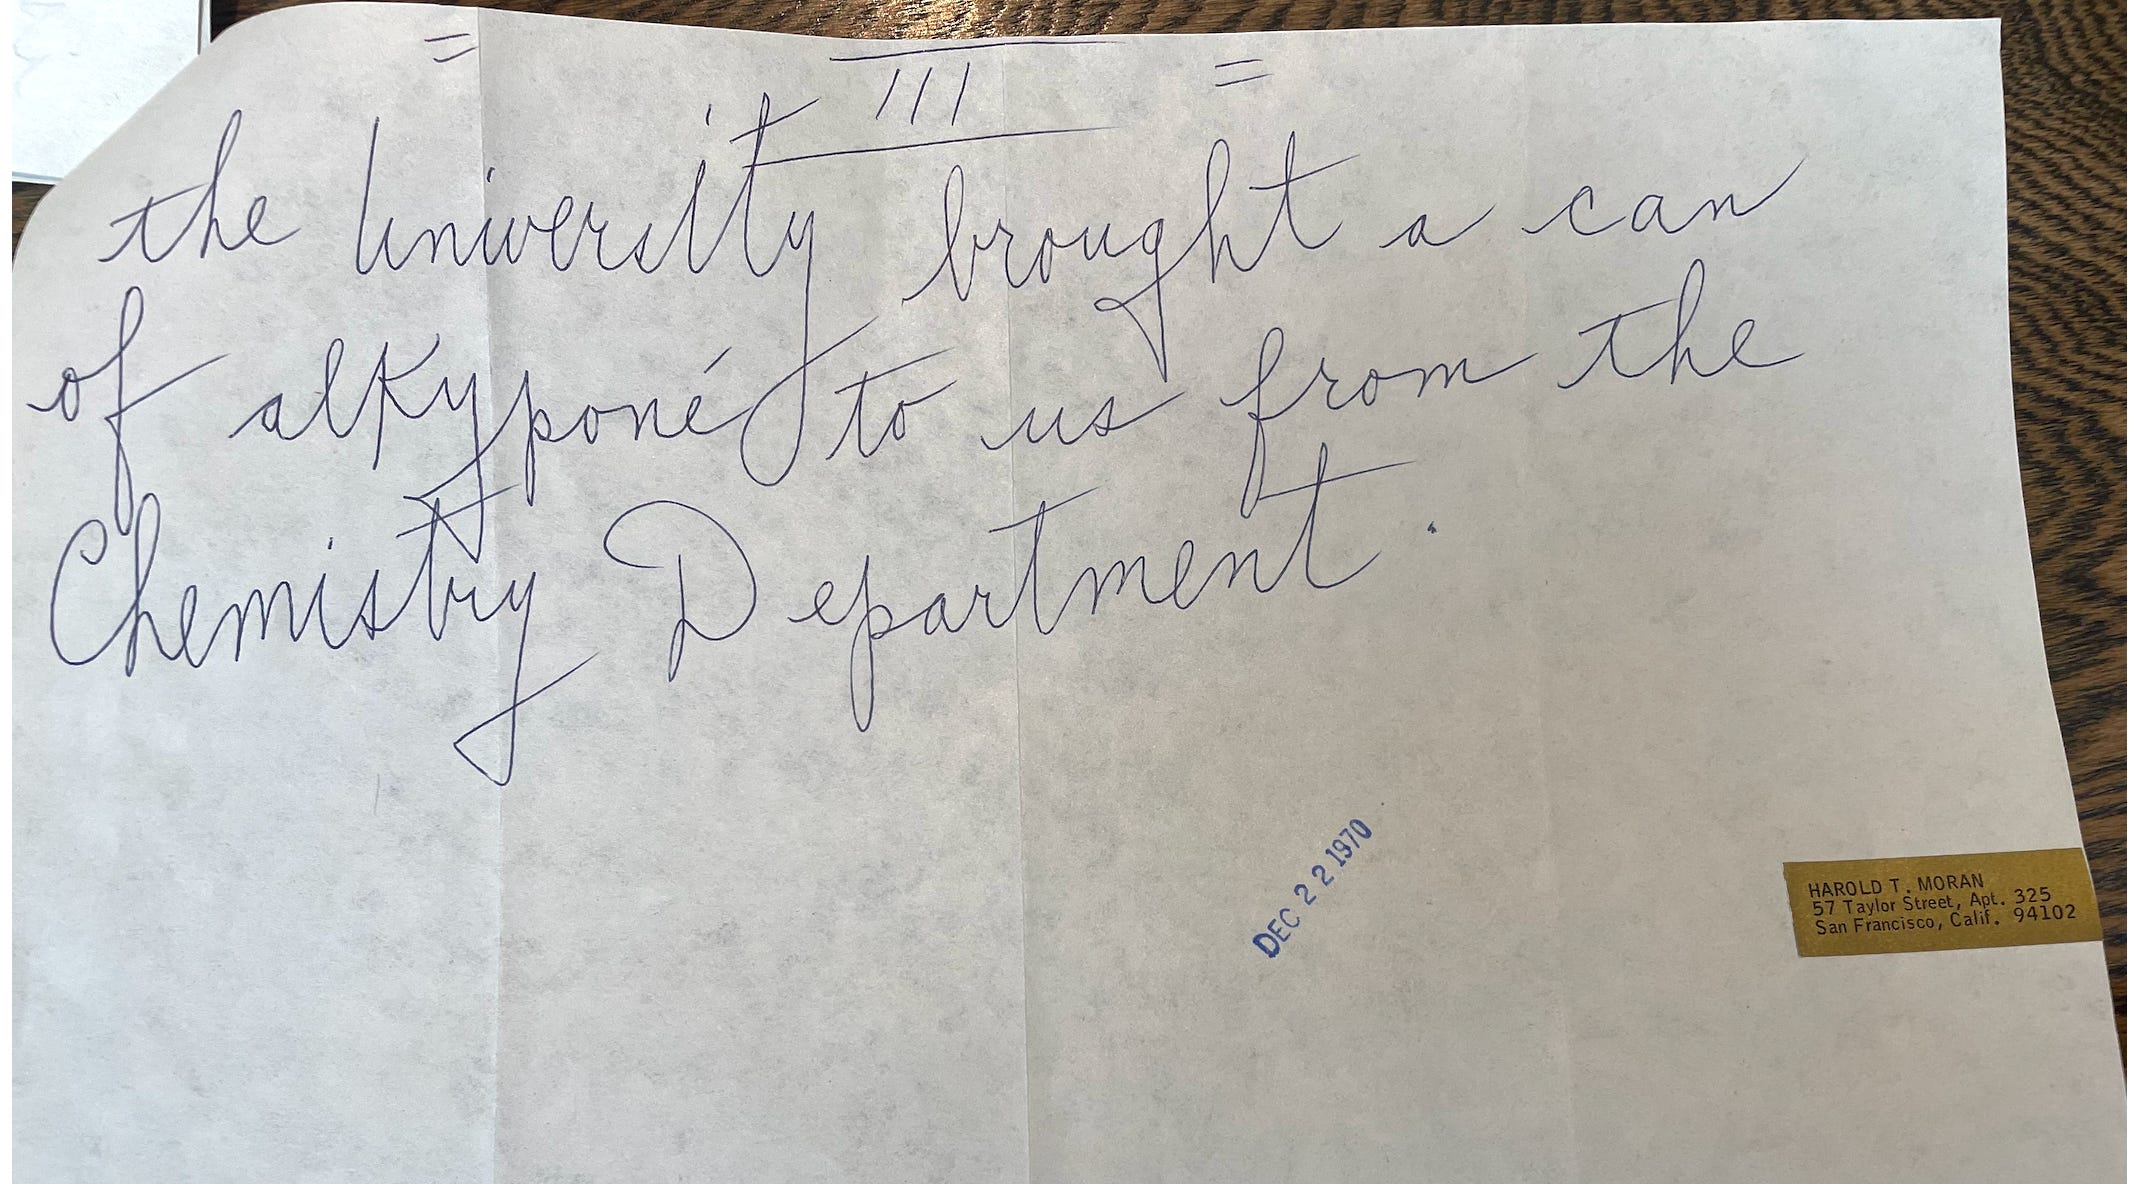 = III =
the University brought a can
of alkyponé to us from the
Chemistry Department.
DEC 22 1970
HAROLD T. MORAN
57 Taylor Street, Apt. 325
San Francisco, Calif. 94102